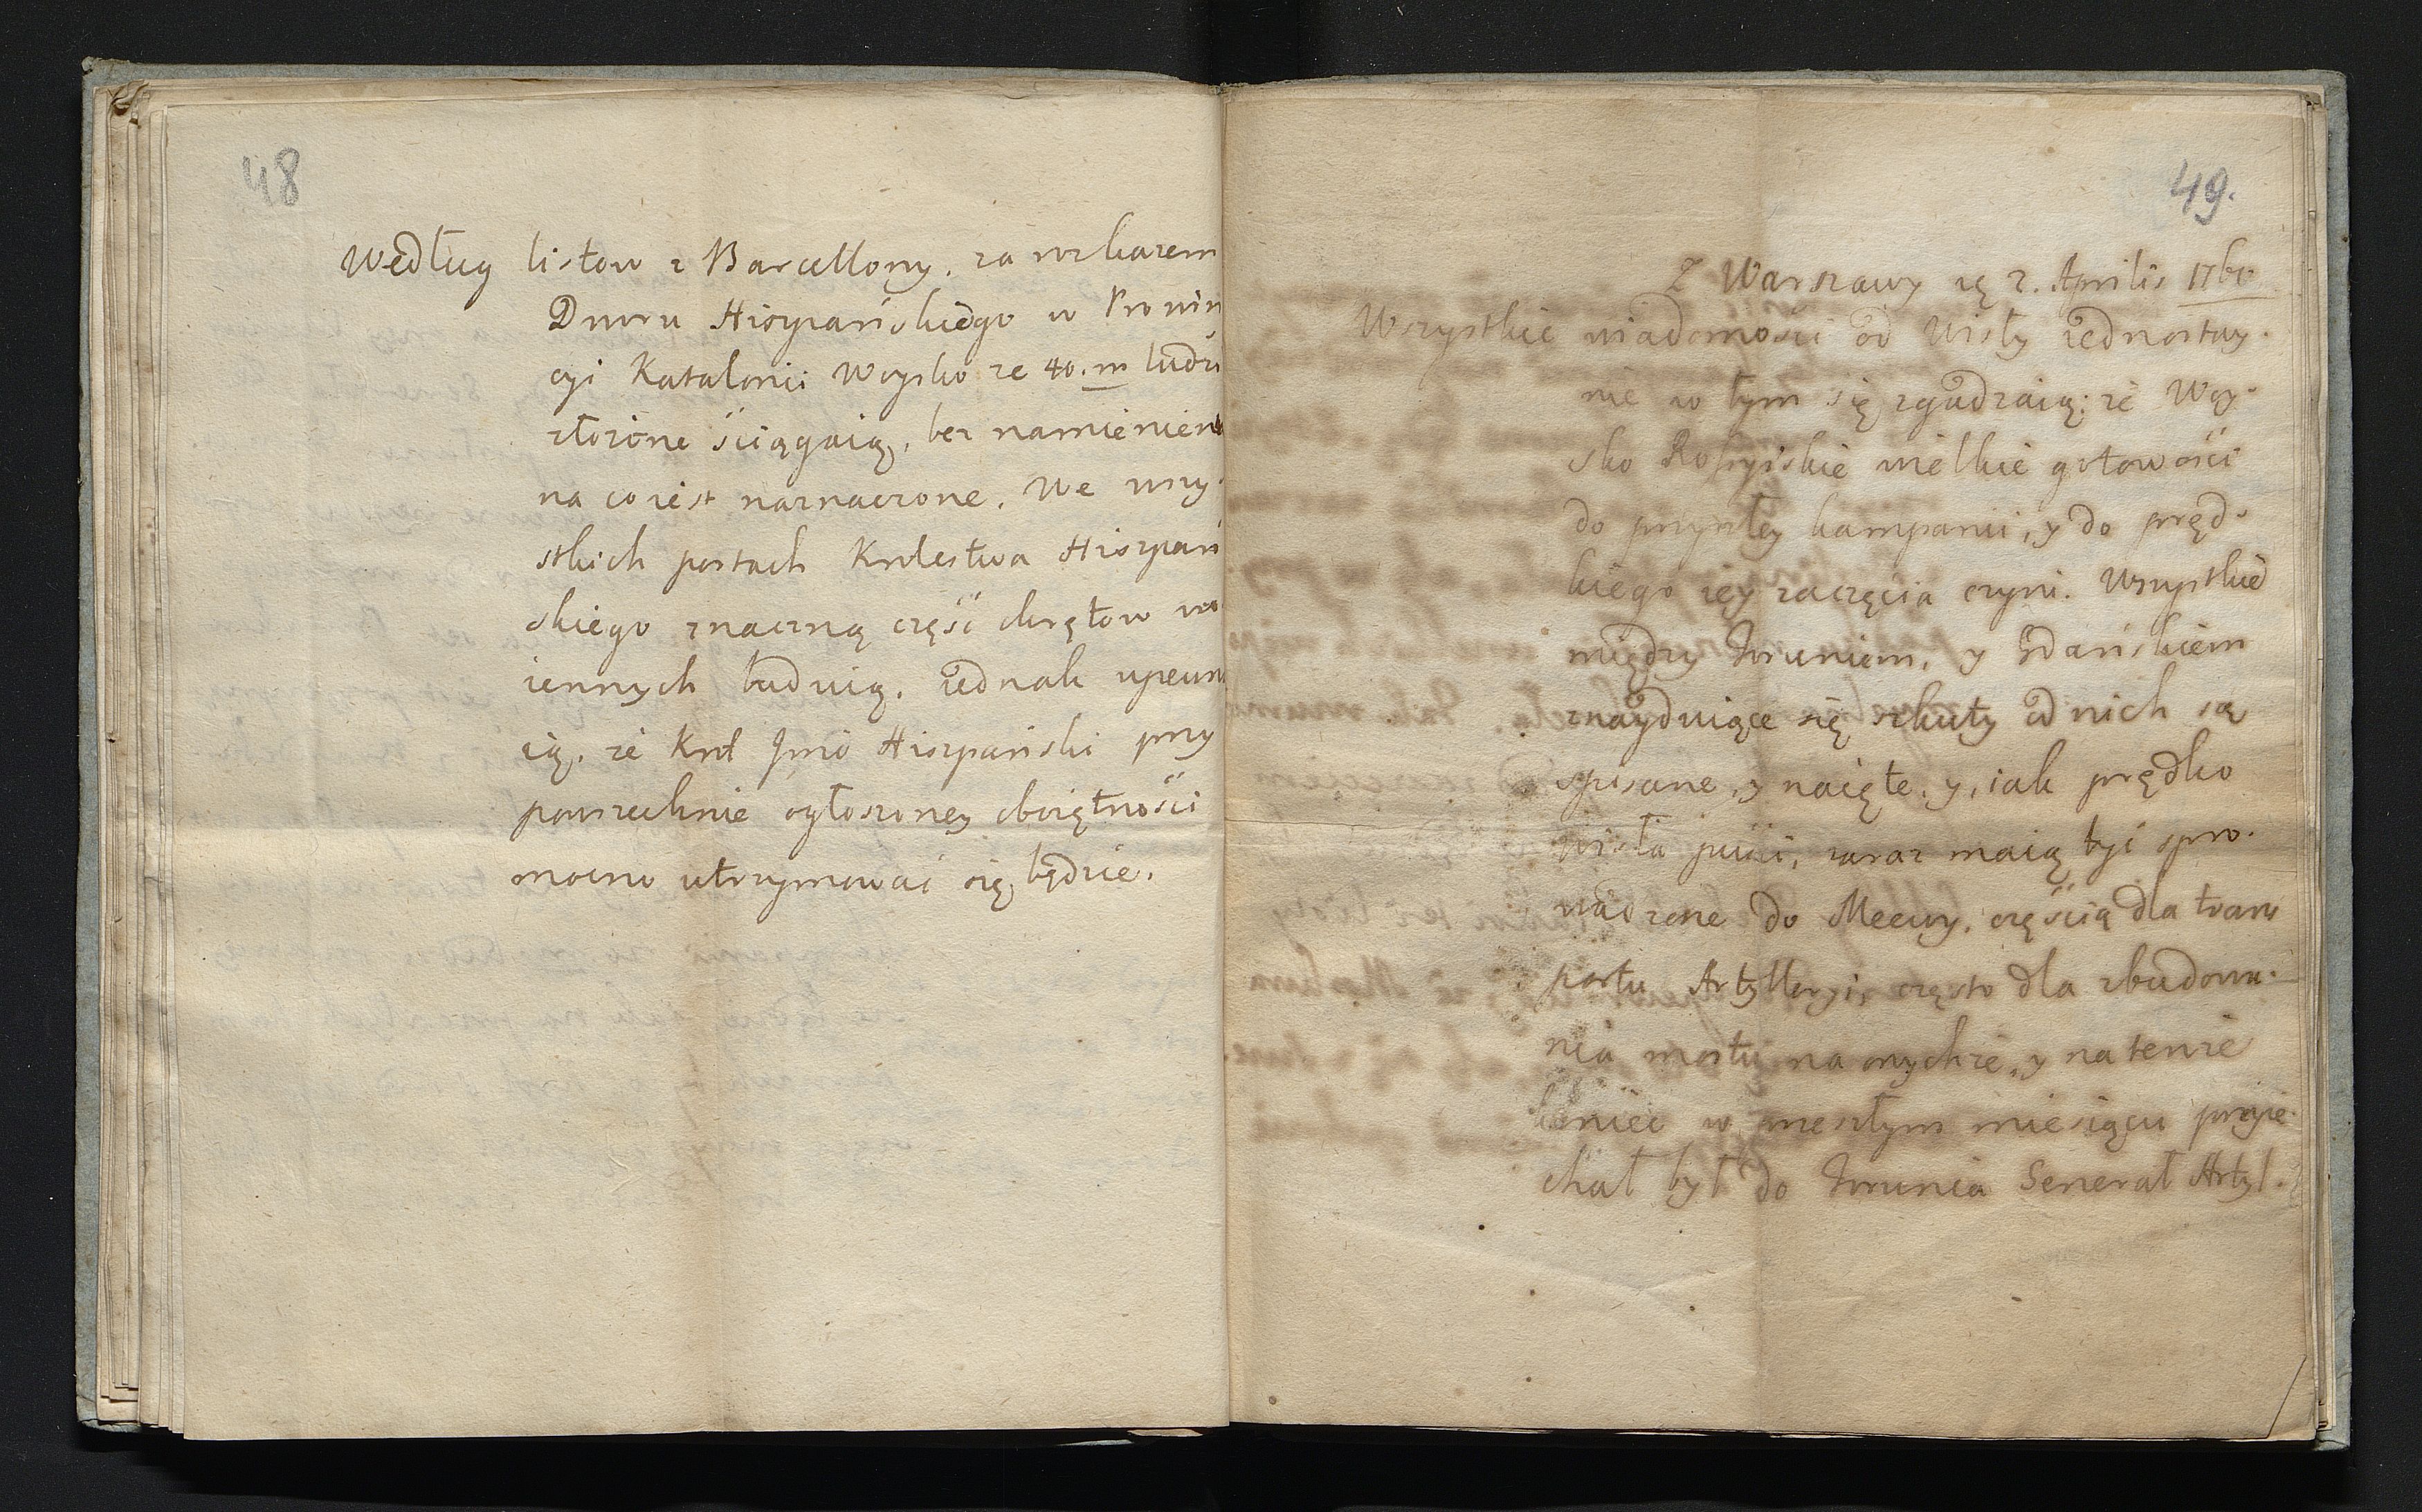 48
Według listow z Barcellony, za rozkazem
Dworu Hiszpańskiego w Prowin
cyi Katalonii Woysko ze 40. m ludzi
złożone ściągaią, bez namienien
na co iest naznaczone. We wszy-
stkich portach Krolestwa Hiszpań
skiego znaczną część okrętow wo
iennych buduią, iednak upewn
ią, że Krol Jmć Hiszpański przy
powszechnie ogłoszoney oboiętności
mocno utrzymować się będzie.
49.
Z Warszawy 2. Aprilis 1760
Wszystkie wiadomości od Wisły iednostay-
nie w tym się zgadzaią: że Woy-
sko Rossyiskie wielkie gotowości
do przyszłey kampanii, y do pręd-
kiego iey zaczęcia czyni. Wszystkie
między Toruniem, y Gdańskiem
znayduiące się szkuty od nich są
spisane, y naięte, y, iak prędko
Wisła puści, zaraz maią być spro-
wadzone do Meewy, częścią dla trans
portu Artylleryi, często dla zbudowa-
nia mostu na onychże, y na tenże
koniec w zeszłym miesiącu przyie-
chał był do Torunia Generał Artyl-